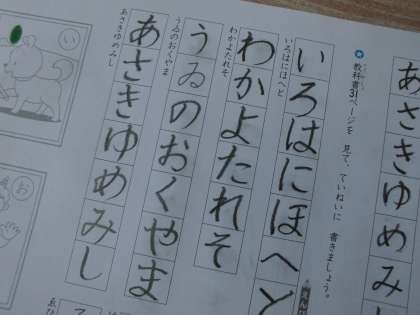 あさきゆめみし
教科書31ページを 見て、ていねいに 書きましょう。
いろはにほへと
いろはにほへと
わかよたれそ
わかよたれそ
うゐのおくやま
うゐのおくやま
あさきゆめみし
あさきゆめみし
い
お